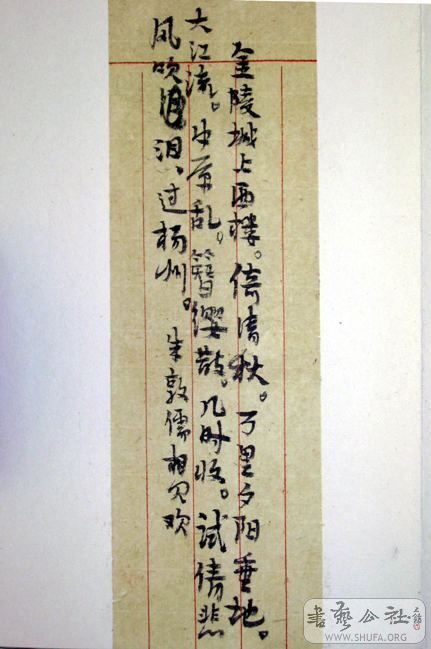 金陵城上西楼。倚清秋。万里夕阳垂地。
大江流。中原乱。簪缨散。几时收。试倩悲
风吹泪过杨州。朱敦儒相见欢
書藝公社
WWW.SHUFA.ORG